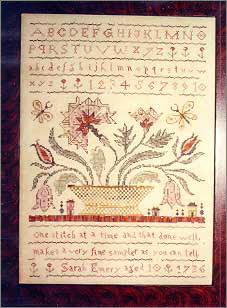 ABCDEFGHIJKLMNO
PQRSTUVWXYZ
abcdefghijklmnopqrstuvw
xyz 12345678910
One stitch at a time and that done well,
makes a very fine sampler as you can tell
Sarah Emery aged 19 1786